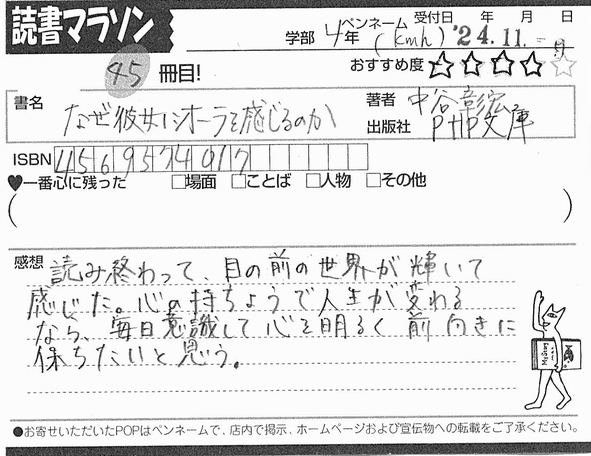 読書マラソン
学部 4年 ペンネーム (kmh) 受付日 年 月 日 '24.11.
45 冊目!
おすすめ度 ☆☆☆☆☆
書名 なぜ彼女にオーラを感じるのか
著者 中谷彰宏
出版社 PHP文庫
ISBN 4569574017
♥一番心に残った □場面 □ことば □人物 □その他
( )
感想 読み終わって、目の前の世界が輝いて
感じた。心の持ちようで人生が変わる
なら、毎日意識して心を明るく前向きに
保ちたいと思う。
●お寄せいただいたPOPはペンネームで、店内で掲示、ホームページおよび宣伝物への転載をご了承ください。